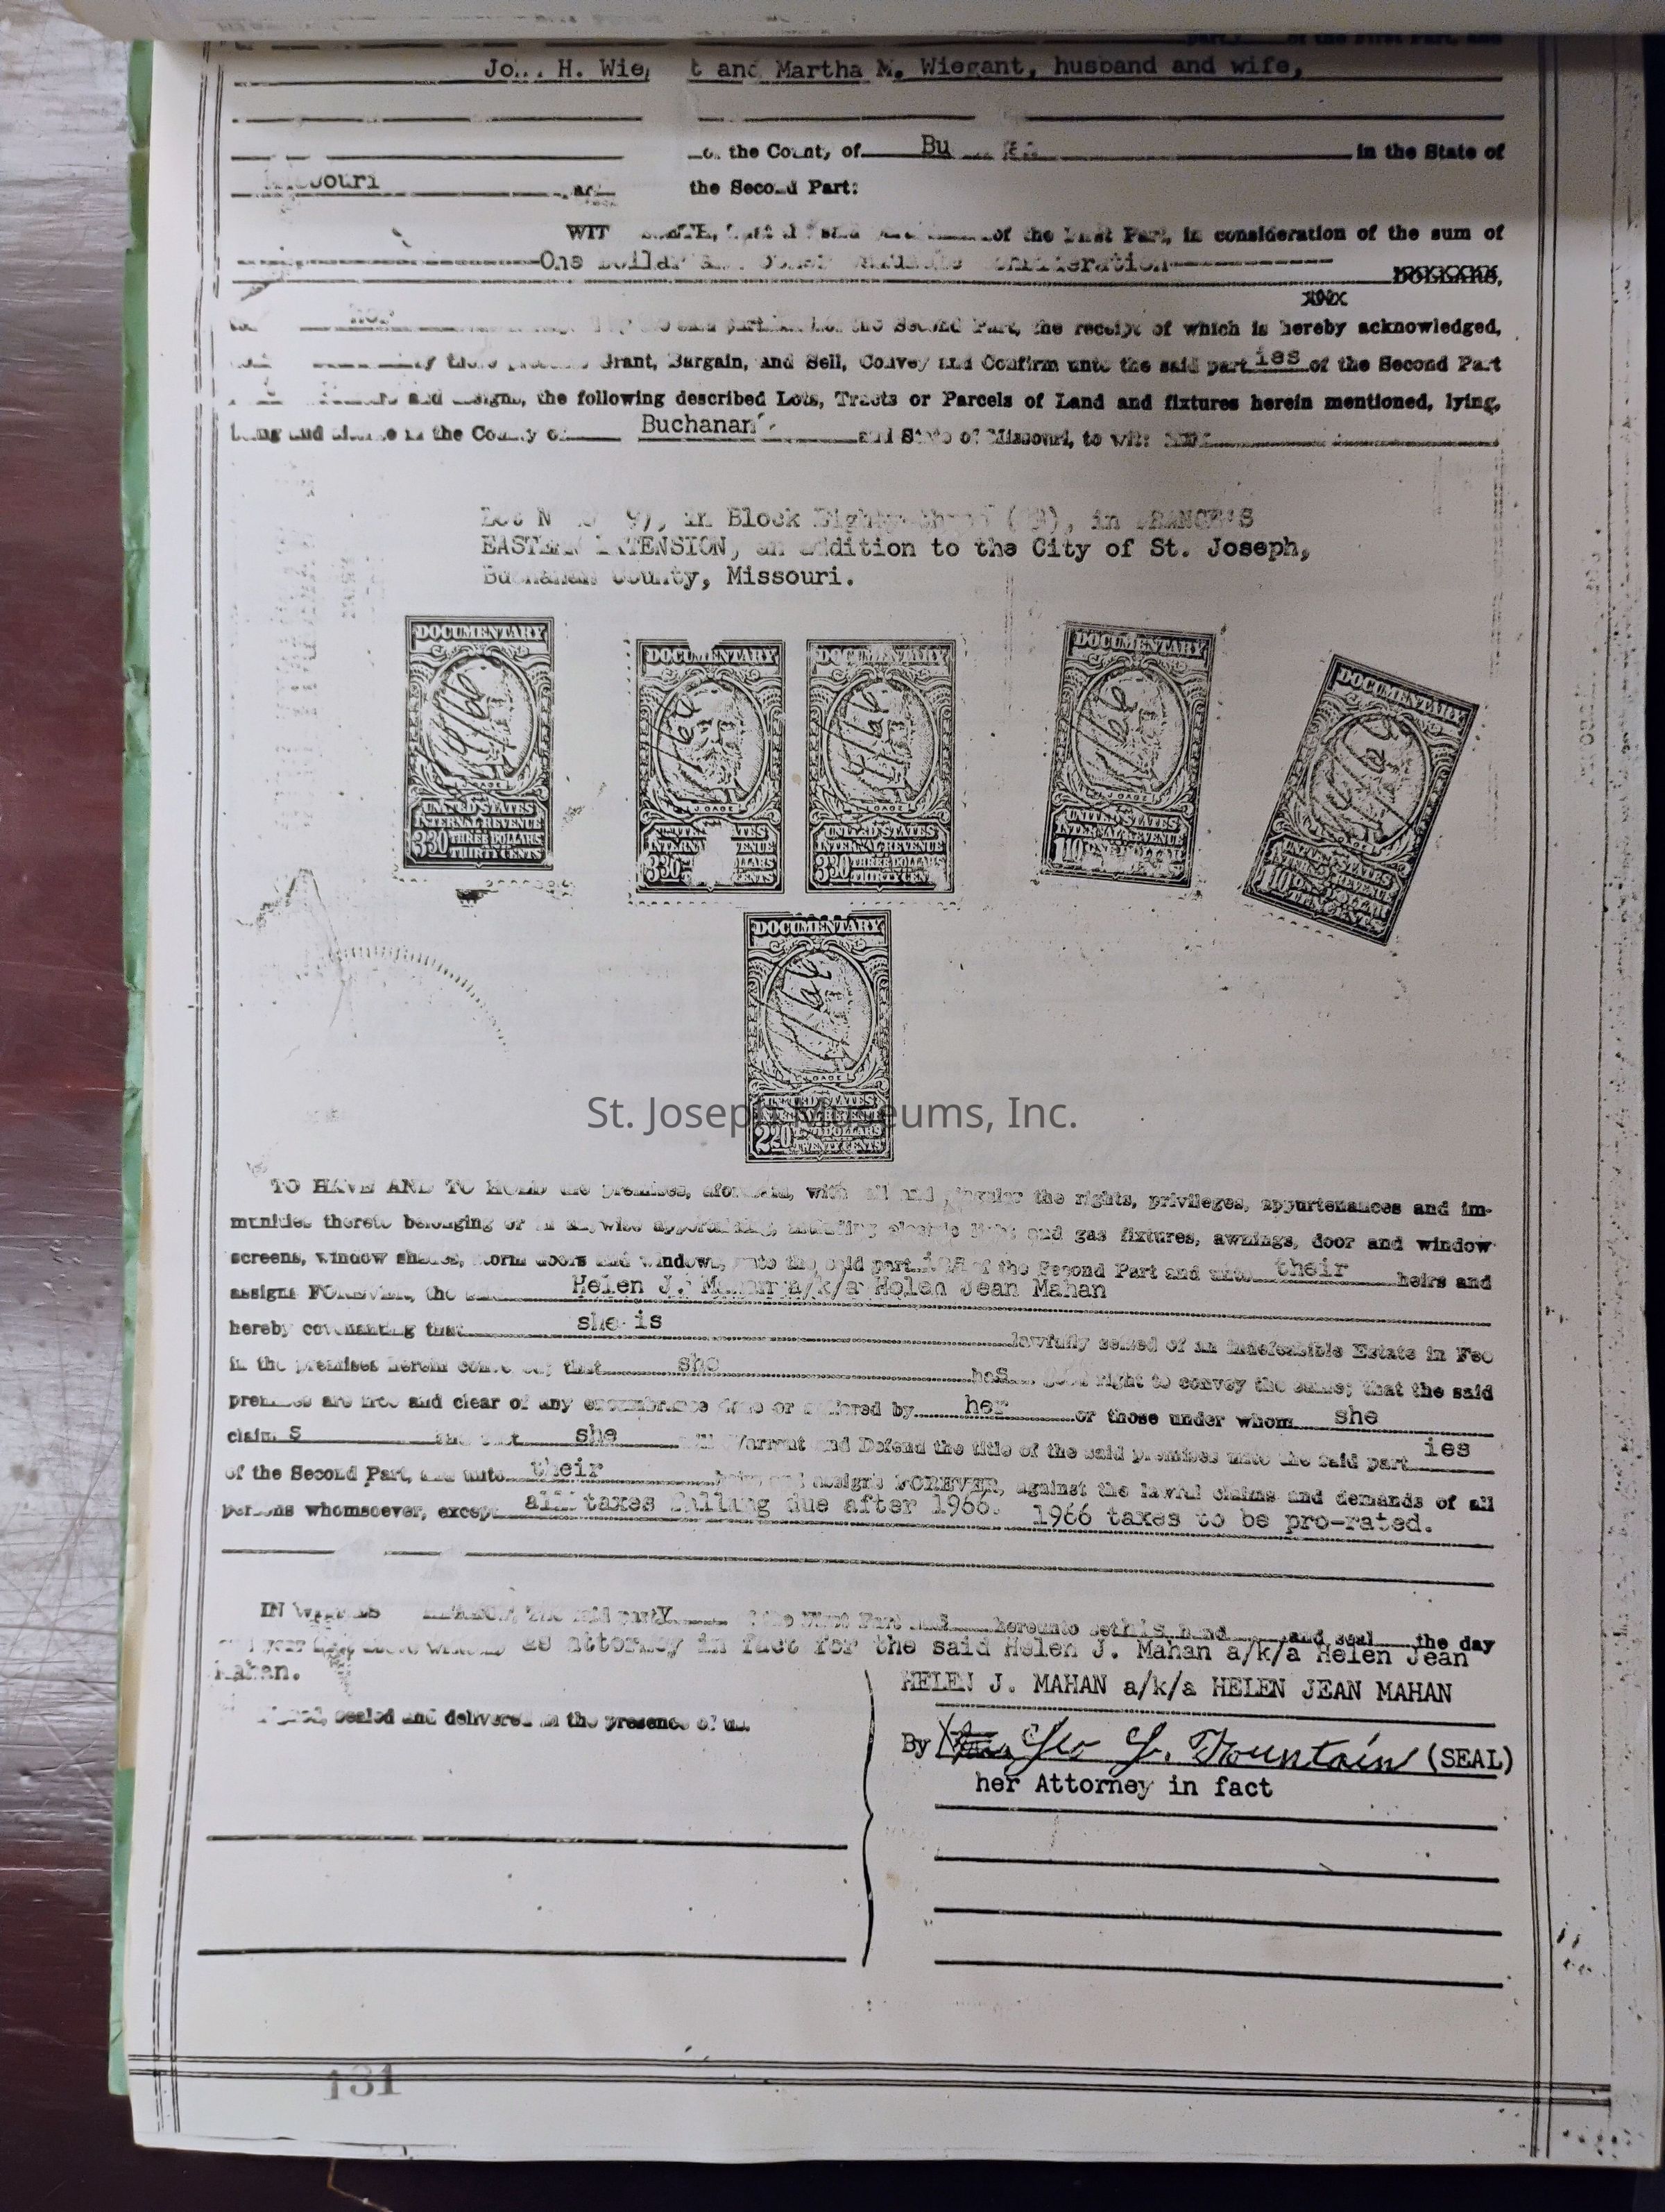 part of the First Part, and
H. and Martha M. Wiegant, husband and wife,
the County of in the State of
the Second Part:
of the First Part, in consideration of the sum of
One Dollar other consideration
DOLLARS,
the Second Part, the receipt of which is hereby acknowledged,
Grant, Bargain, and Sell, Convey and Confirm unto the said part ies of the Second Part
and assigns, the following described Lots, Tracts or Parcels of Land and fixtures herein mentioned, lying,
being and situate in the County of Buchanan and State of Missouri, to wit:
Lot 9), in Block in RANGE'S
EASTERN EXTENSION, an addition to the City of St. Joseph,
Buchanan County, Missouri.
DOCUMENTARY
DOCUMENTARY
DOCUMENTARY
DOCUMENTARY
DOCUMENTARY
UNITED STATES
INTERNAL REVENUE
330 THREE DOLLARS
THIRTY CENTS
UNITED STATES
INTERNAL REVENUE
330 THREE DOLLARS
THIRTY CENTS
UNITED STATES
INTERNAL REVENUE
110 ONE DOLLAR
UNITED STATES
INTERNAL REVENUE
110 ONE DOLLAR
TEN CENTS
DOCUMENTARY
UNITED STATES
INTERNAL REVENUE
220 TWO DOLLARS
TWENTY CENTS
St. Joseph Museums, Inc.
TO HAVE AND TO HOLD the premises, aforesaid, with all and singular the rights, privileges, appurtenances and im-
munities thereto belonging or in anywise appertaining, including electric light and gas fixtures, awnings, door and window
screens, window shades, storm doors and windows, unto the said part ies of the Second Part and unto their heirs and
assigns FOREVER, the said Helen J. Mahan a/k/a Helen Jean Mahan
hereby covenanting that she is lawfully seized of an indefeasible Estate in Fee
in the premises herein conveyed; that she has good right to convey the same; that the said
premises are free and clear of any encumbrance done or suffered by her or those under whom she
claim s and that she will Warrant and Defend the title of the said premises unto the said part ies
of the Second Part, and unto their heirs and assigns FOREVER, against the lawful claims and demands of all
persons whomsoever, except all taxes falling due after 1966. 1966 taxes to be pro-rated.
IN WITNESS WHEREOF, The said party of the First Part has hereunto set his hand and seal the day
and year first above written as attorney in fact for the said Helen J. Mahan a/k/a Helen Jean
Mahan.
HELEN J. MAHAN a/k/a HELEN JEAN MAHAN
Signed, sealed and delivered in the presence of us.
By Geo L. Fountain (SEAL)
her Attorney in fact
131